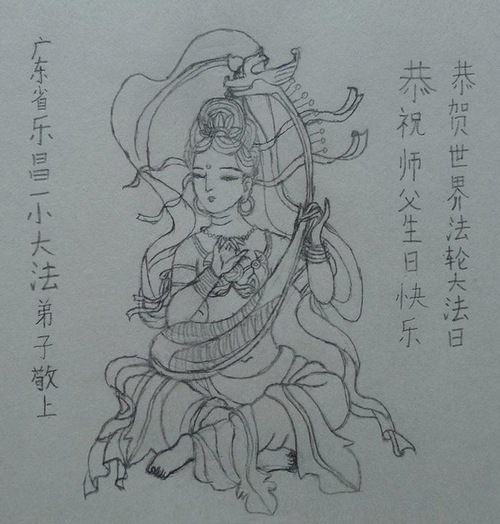 恭贺世界法轮大法日
恭祝师父生日快乐
广东省乐昌一小大法弟子敬上